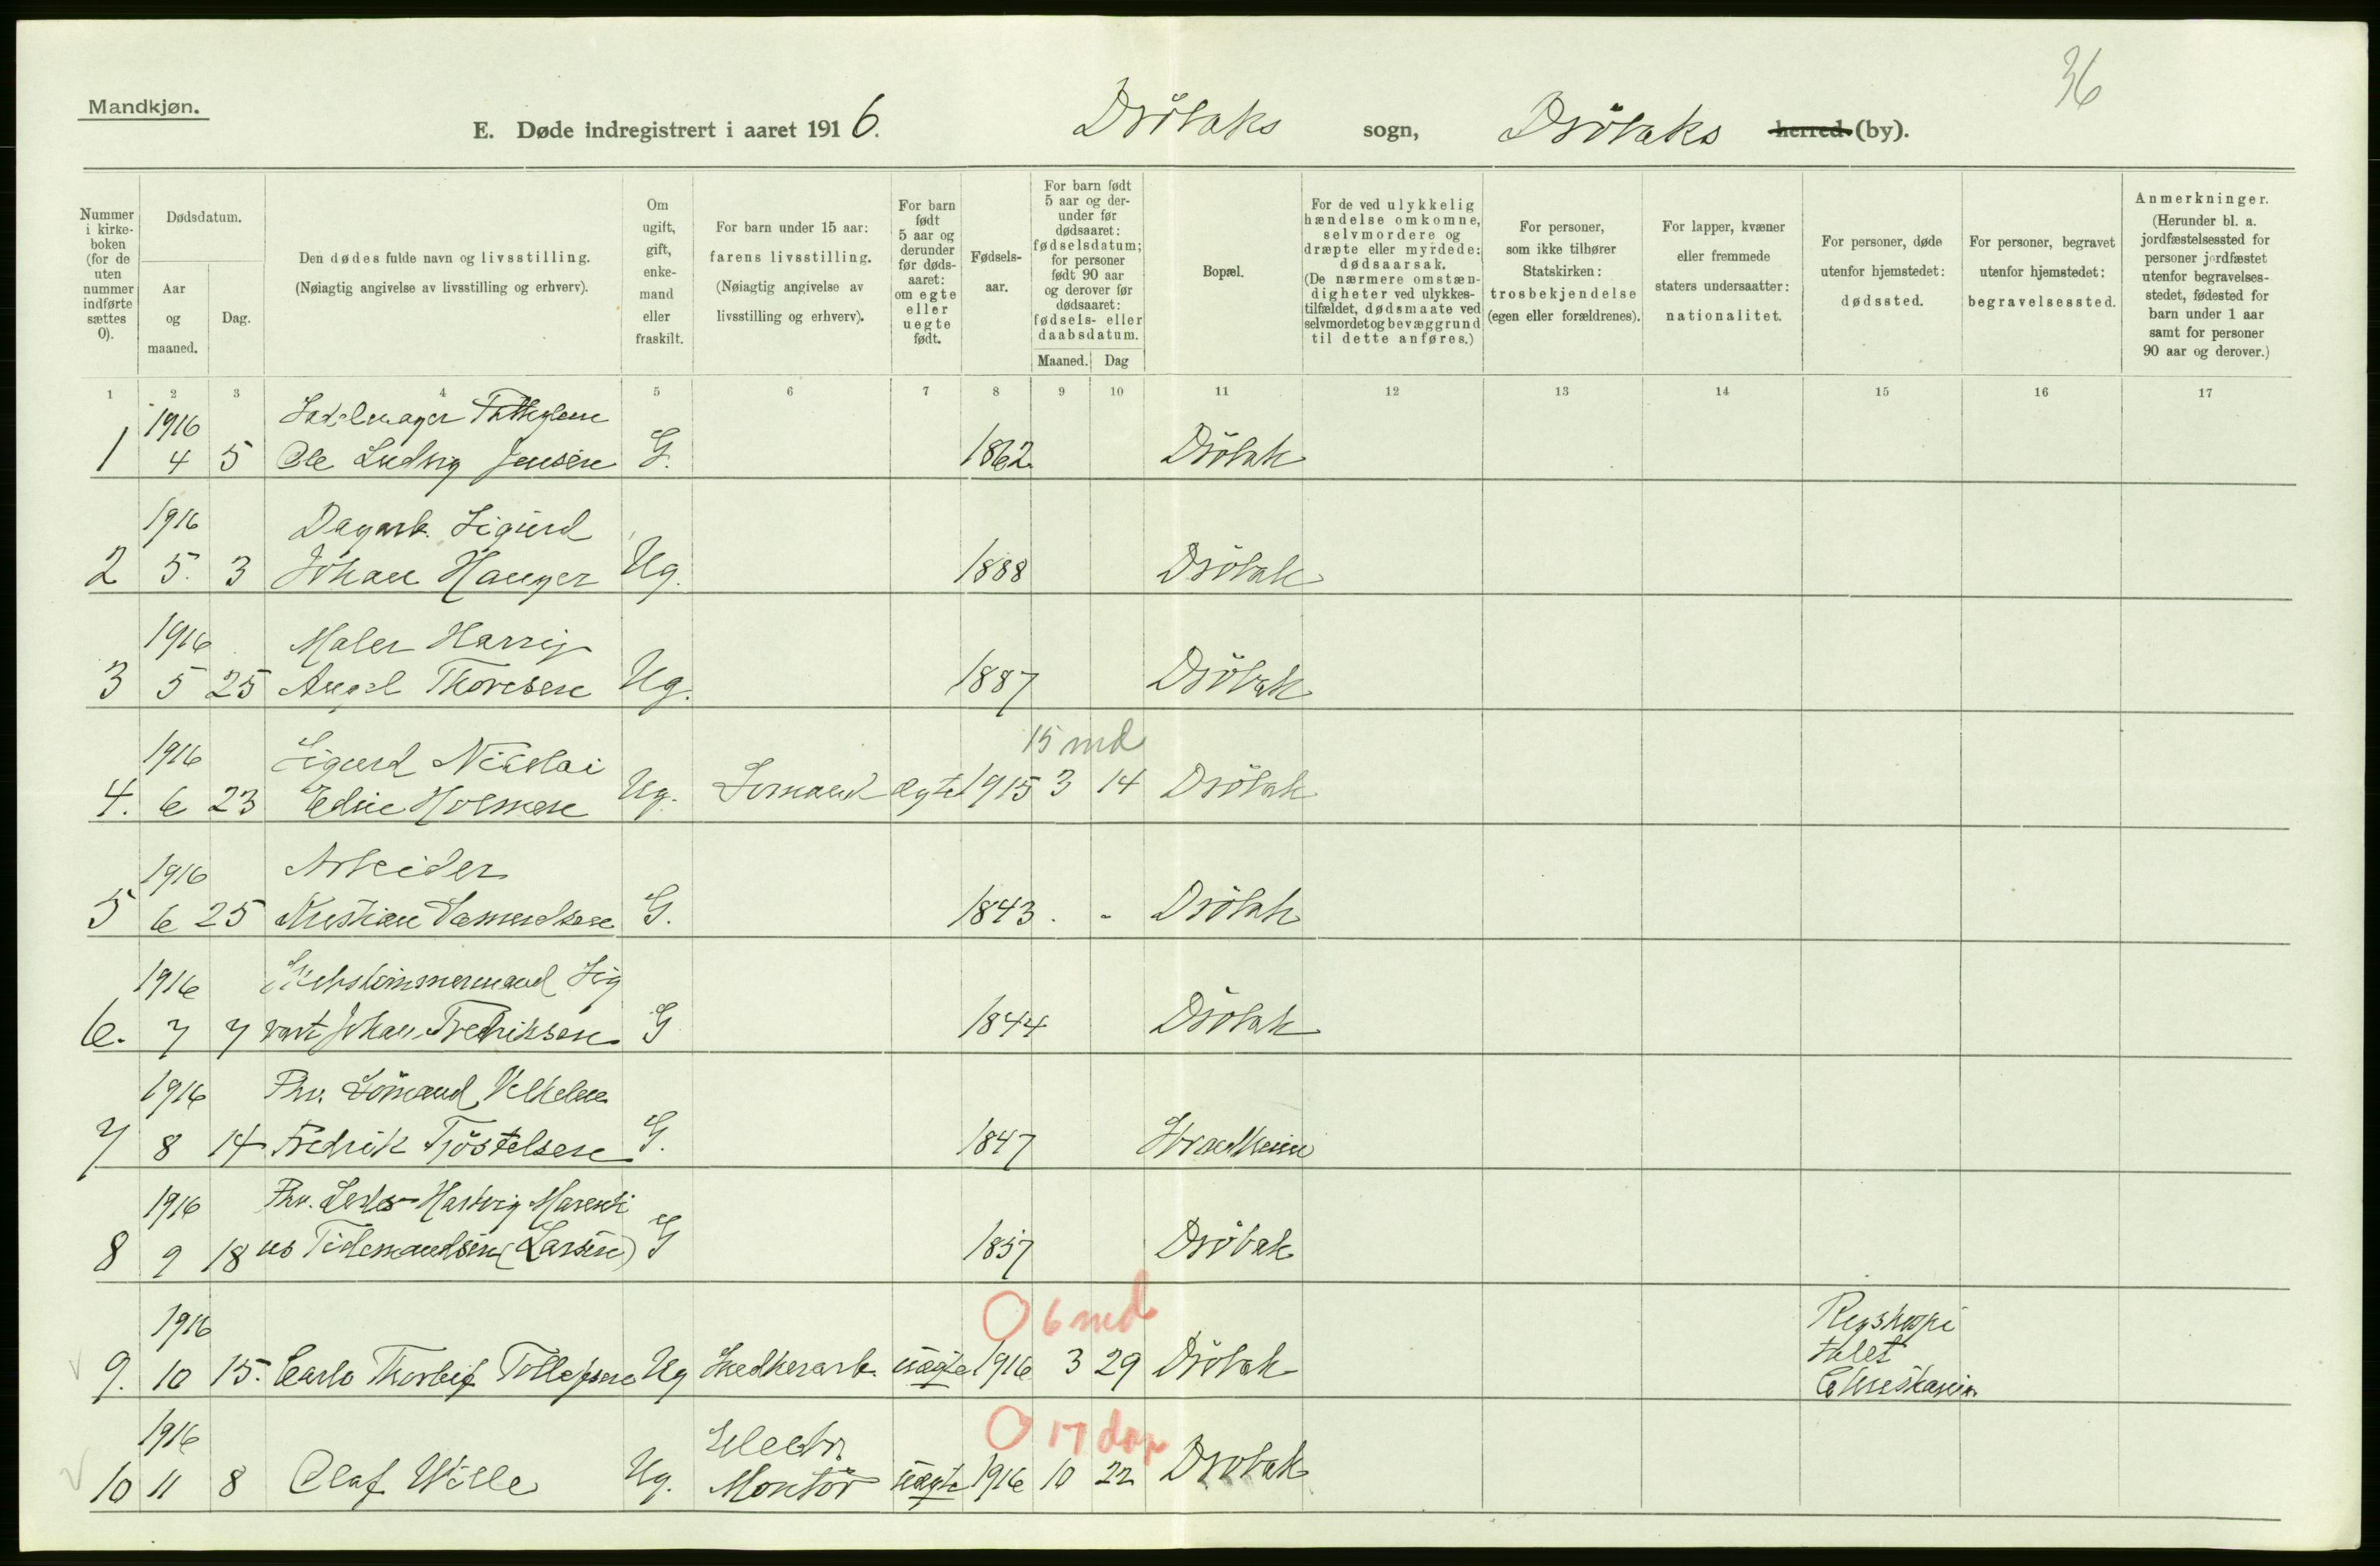 36
Mandkjøn.
E. Døde indregistrert i aaret 1916. Drøbaks sogn, Drøbaks herred (by).
Nummer i kirke-boken (for de uten nummer indførte sættes 0).
Dødsdatum.
Aar og maaned.
Dag.
Den dødes fulde navn og livsstilling.
(Nøiagtig angivelse av livsstilling og erhverv).
Om ugift, gift, enke-mand eller fraskilt.
For barn under 15 aar:
farens livsstilling.
(Nøiagtig angivelse av livsstilling og erhverv).
For barn født 5 aar og derunder før døds-aaret: om egte eller uegte født.
Fødsels-aar.
For barn født 5 aar og der-under før dødsaaret: fødselsdatum; for personer født 90 aar og derover før dødsaaret: fødsels- eller daabsdatum.
Maaned. Dag
Bopæl.
For de ved ulykkelig hændelse omkomne, selvmordere og dræpte eller myrdede: dødsaarsak.
(De nærmere omstæn-digheter ved ulykkes-tilfældet, dødsmaate ved selvmordet og bevæggrund til dette anføres.)
For personer, som ikke tilhører Statskirken: trosbekjendelse (egen eller forældrenes).
For lapper, kvæner eller fremmede staters undersaatter: nationalitet.
For personer, døde utenfor hjemstedet: dødssted.
For personer, begravet utenfor hjemstedet: begravelsessted.
Anmerkninger.
(Herunder bl. a. jordfæstelsessted for personer jordfæstet utenfor begravelses-stedet, fødested for barn under 1 aar samt for personer 90 aar og derover.)
1 2 3 4 5 6 7 8 9 10 11 12 13 14 15 16 17
1916
1 4 5 Ole Ludvig Jensen G. 1862 Drøbak
1916 Dagarb. Sigurd
2 5. 3 Johan Hauger Ug. 1888 Drøbak
1916 Maler Harry
3 5 25 Thoresen Ug. 1887 Drøbak
15 md
1916 Sigurd Nicolai
4. 6 23 Holmsen Ug. Sømand ægte 1915 3 14 Drøbak
1916 Arbeider
5 6 25 Kristian Samuelsen G. 1843 . - Drøbak
1916 Skibstømmermand Sig
6. 7 7 vart Johan Fredriksen G 1844 Drøbak
1916 Fhv. Sømand Vilhelm
7 8 14 Fredrik Tjøstelsen G. 1847
1916 Fhv. Hartvig Marenti
8 9 18 us Tidemandsen (Larsen) G 1857 Drøbak
O 6 md
1916
9. 10 15. Carlo Thorleif Tollefsen Ug Snedkerarb. uægte 1916 3 29 Drøbak
Rigshospi
talet
Christiania.
O 17 dag
1916 Electr.
10 11 8 Olaf Wille Ug. Montør uægte 1916 10 22 Drøbak